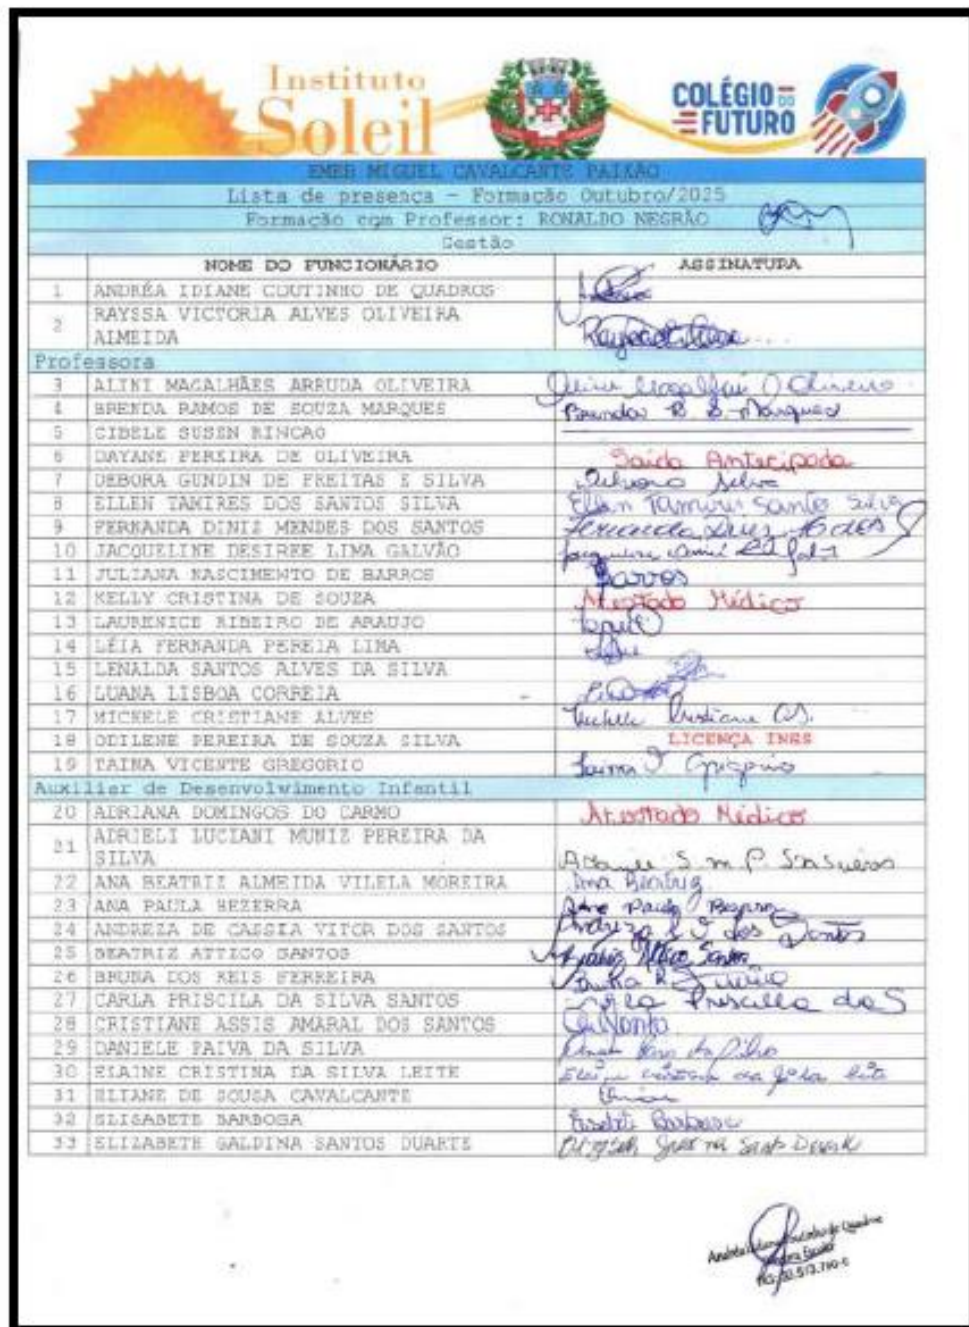 Instituto
Soleil
COLÉGIO DO
FUTURO
EMEB MIGUEL CAVALCANTE PAIXÃO
Lista de presença - Formação Outubro/2025
Formação com Professor: RONALDO NEGRÃO
Gestão
NOME DO FUNCIONÁRIO ASSINATURA
1 ANDRÉA IDIANE COUTINHO DE QUADROS
2 RAYSSA VICTORIA ALVES OLIVEIRA
ALMEIDA
Professora
3 ALINI MAGALHÃES ARRUDA OLIVEIRA
4 BRENDA RAMOS DE SOUZA MARQUES Brenda R. S. Marques
5 CIBELE SUSEN RINCAO
6 DAYANE PEREIRA DE OLIVEIRA Saída Antecipada
7 DEBORA GUNDIN DE FREITAS E SILVA Silva
8 ELLEN TAMIRES DOS SANTOS SILVA Ellen Tamires Santos Silva
9 FERNANDA DINIZ MENDES DOS SANTOS Fernanda Diniz
10 JACQUELINE DESIREE LIMA GALVÃO
11 JULIANA NASCIMENTO DE BARROS Barros
12 KELLY CRISTINA DE SOUZA Atestado Médico
13 LAURENICE RIBEIRO DE ARAUJO
14 LÉIA FERNANDA PEREIA LIMA
15 LENALDA SANTOS ALVES DA SILVA
16 LUANA LISBOA CORREIA
17 MICHELE CRISTIANE ALVES Michele Cristiane
18 ODILENE PEREIRA DE SOUZA SILVA LICENÇA INSS
19 TAINA VICENTE GREGORIO Taina V. Gregorio
Auxiliar de Desenvolvimento Infantil
20 ADRIANA DOMINGOS DO CARMO Atestado Médico
21 ADRIELI LUCIANI MUNIZ PEREIRA DA
SILVA
22 ANA BEATRIZ ALMEIDA VILELA MOREIRA Ana Beatriz
23 ANA PAULA BEZERRA Ana Paula Bezerra
24 ANDREZA DE CASSIA VITOR DOS SANTOS Andreza dos Santos
25 BEATRIZ ATTICO SANTOS Beatriz Attico Santos
26 BRUNA DOS REIS FERREIRA
27 CARLA PRISCILA DA SILVA SANTOS Carla Priscilla da S
28 CRISTIANE ASSIS AMARAL DOS SANTOS
29 DANIELE PAIVA DA SILVA
30 ELAINE CRISTINA DA SILVA LEITE Elaine Cristina da Silva Leite
31 ELIANE DE SOUSA CAVALCANTE
32 ELISABETE BARBOSA Elisabete Barbosa
33 ELIZABETE GALDINA SANTOS DUARTE